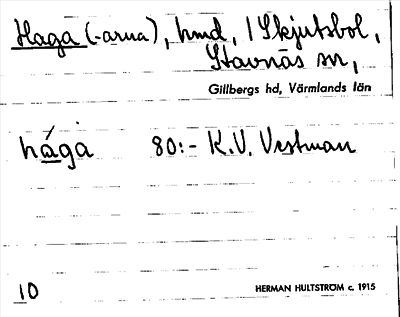 Haga (-arna), hmd, 1 Skjutsbol,
Stavnäs sn,
Gillbergs hd, Värmlands län
hága 80:- K.V. Vestman
10
HERMAN HULTSTRÖM c. 1915